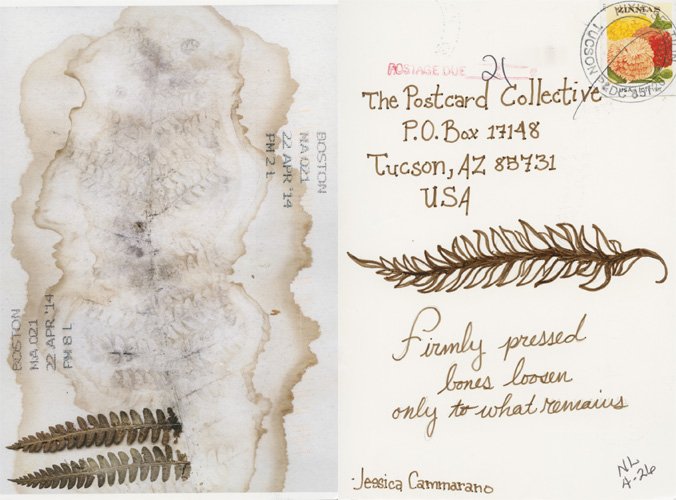 BOSTON
MA 021
22 APR '14
PM 2 L
BOSTON
MA 021
22 APR '14
PM 8 L
ZINNIAS
POSTAGE DUE 21
The Postcard Collective
P.O. Box 17148
Tucson, AZ 85731
USA
Firmly pressed
bones loosen
only to what remains
Jessica Cammarano
NL
4-26